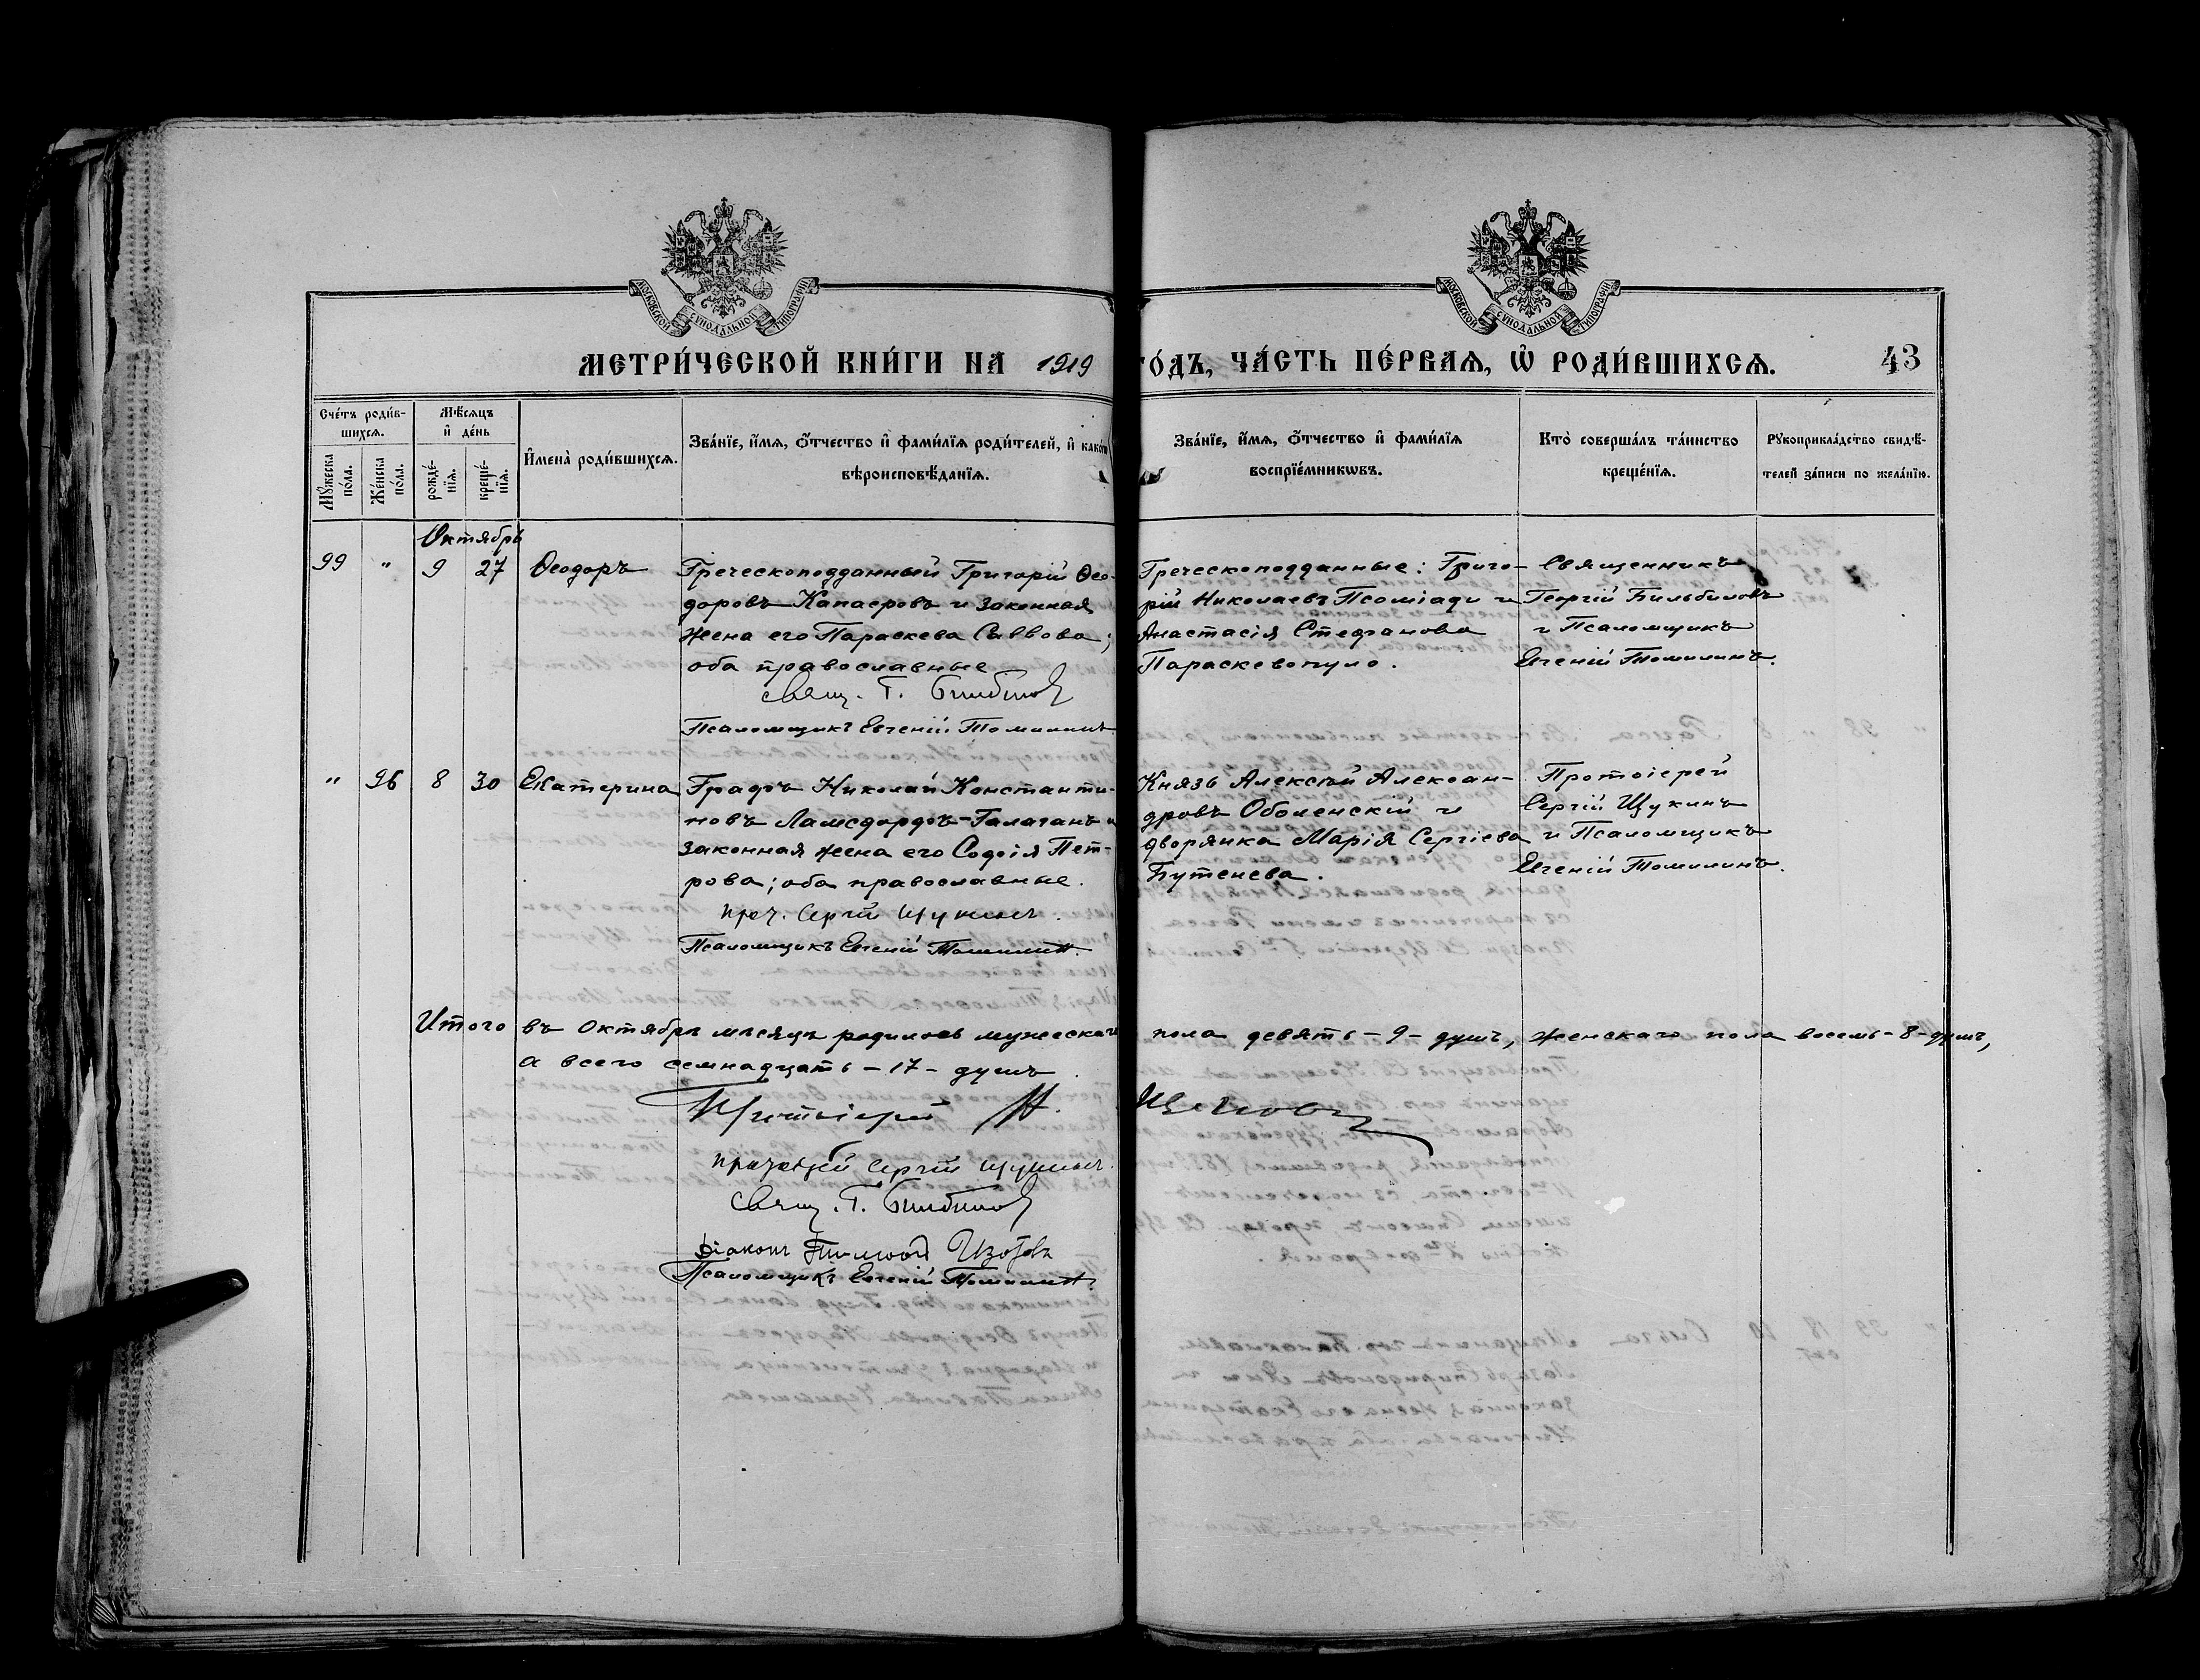 МОСКОВСКОЙ СУНОДАЛЬНОЙ ТИПОГРАФІИ
МОСКОВСКОЙ СУНОДАЛЬНОЙ ТИПОГРАФІИ
МЕТРИ́ЧЕСКОЙ КНИ́ГИ НА 1919 ГО́ДЪ, ЧА́СТЬ ПЕ́РВАѦ, Ѽ РОДИ́ВШИХСѦ. 43
Сче́тъ роди́в-
шихсѧ.
Мꙋ́жеска по́ла.
Же́нска по́ла.
Мѣ́сѧцъ
и҆ де́нь
рожде́-
нїѧ.
креще́-
нїѧ.
И҆мена̀ роди́вшихсѧ.
Зва́нїе, и҆́мѧ, ѻ҆́тчество и҆ фами́лїѧ роди́телей, и҆ како́гѡ
вѣроисповѣ́данїѧ.
Зва́нїе, и҆́мѧ, ѻ҆́тчество и҆ фами́лїѧ
воспрїе́мникѡвъ.
Кто̀ соверша́лъ та́инство
креще́нїѧ.
Рꙋкоприкла́дство свидѣ́-
телей за́писи по жела́нїю.
Октябрь
99 " 9 27 Ѳеодоръ
Греческоподданный Григорій Ѳео-
доровъ Капаеровъ и законная
жена его Параскева Саввова;
оба православные
Свящ. Г. Бильбиловъ
Псаломщикъ Евгеній Томилинъ
Греческоподданные: Григо-
рій Николаевъ Псоміади и
Анастасія Стефанова
Параскевопуло.
Священникъ
Георгій Бильбиловъ
и Псаломщикъ
Евгеній Томилинъ.
" 96 8 30 Екатерина
Графъ Николай Константи-
новъ Ламсдорфъ-Галаганъ и
законная жена его Софія Пет-
рова; оба православные.
прот. Сергій Щукинъ.
Псаломщикъ Евгеній Томилинъ.
Князь Алексѣй Алексан-
дровъ Оболенскій и
дворянка Марія Сергіева
Бутенева.
Протоіерей
Сергій Щукинъ
и Псаломщикъ
Евгеній Томилинъ.
Итого въ Октябрѣ мѣсяцѣ родилось мужескаго пола девять - 9 - душъ, женскаго пола восемь - 8 - душъ,
а всего семнадцать - 17 - душъ.
Протоіерей
протоіерей Сергій Щукинъ.
Свящ. Г. Бильбиловъ
Діаконъ Тимофей Изотовъ
Псаломщикъ Евгеній Томилинъ.